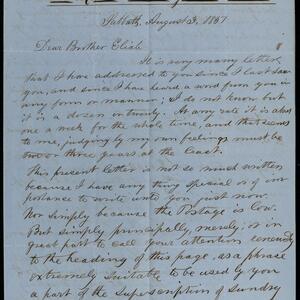 Sabbath, August 3, 1857
Dear Brother Eliab
It is very many letters
that I have addressed to you since I last saw
you, and since I has heard a word from you in
any form or manner; I do not know but
it is a dozen or twenty. At any rate it is also
one a week for the whole time and that seems
to me, judging by my own feelings must be
two or three years at the least.
This present letter is not so much written
because I have any thing special or im
portance to write unto you just now.
Nor simply because the Postage is low.
But simply, principally, merely, is in
great part to call your attention
to the heading of this page, as a phrase
extremely suitable to be used by you
a part of the Superscription of Sundry